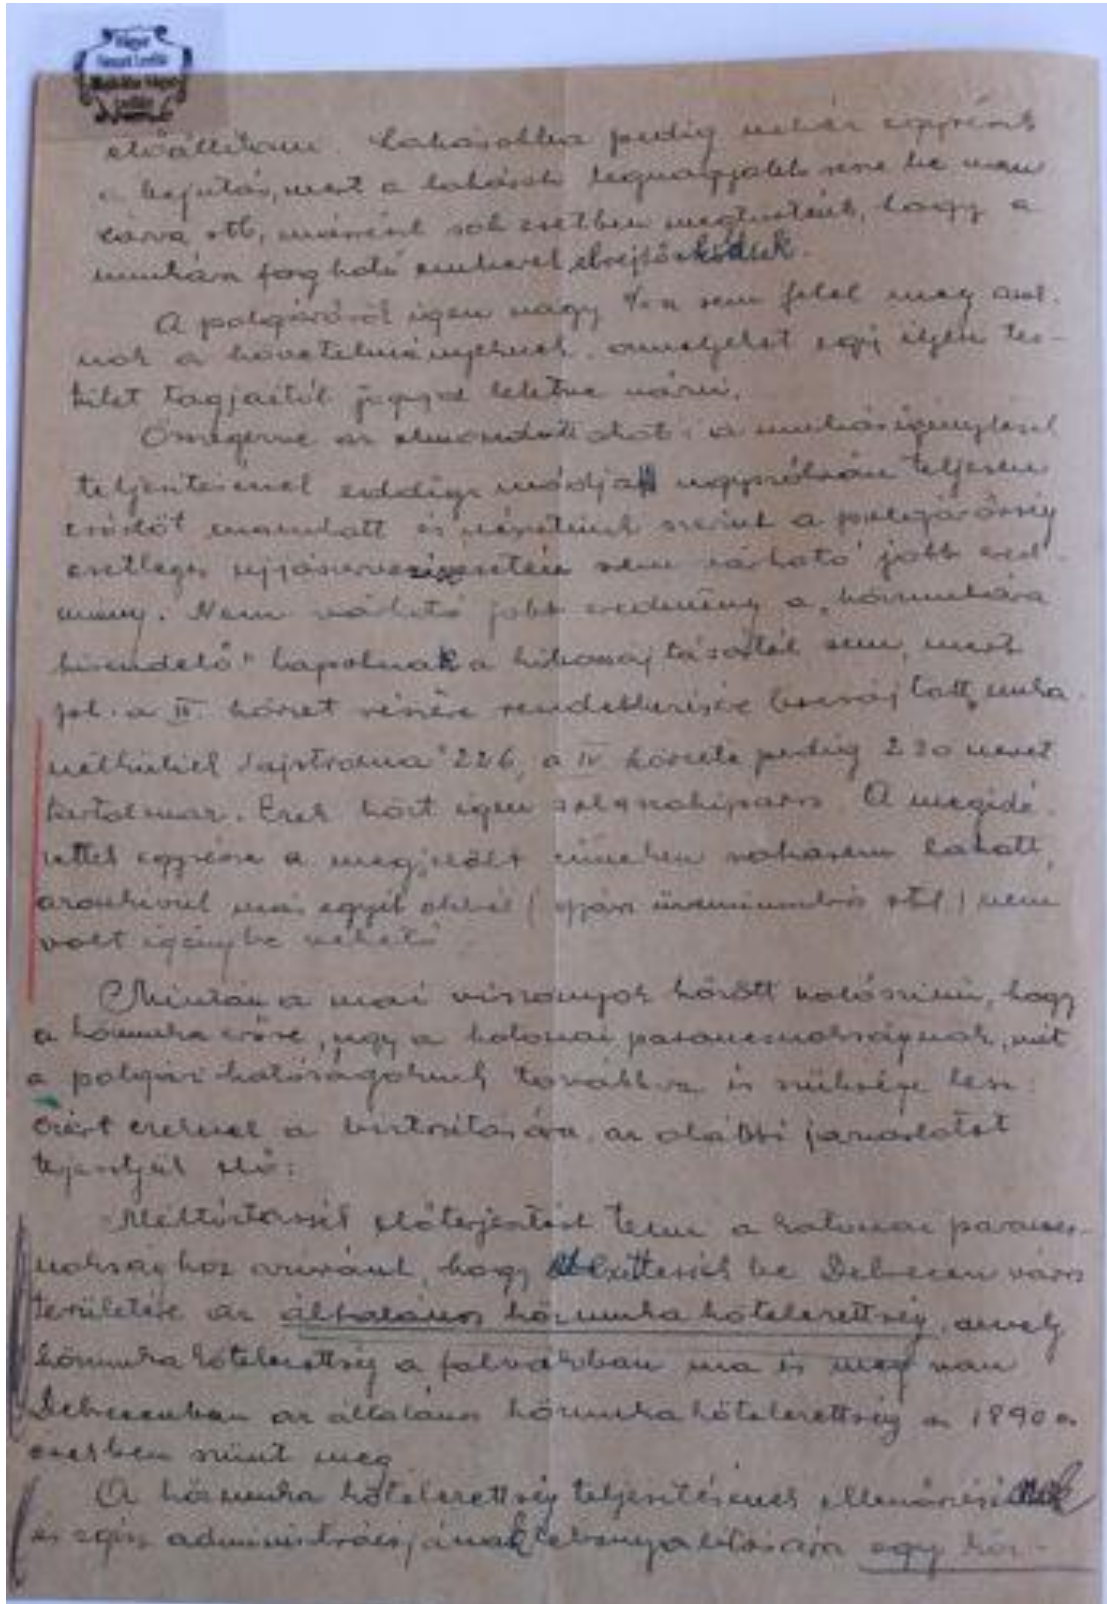 Magyar
Nemzeti Levéltár
Hajdú-Bihar Megyei
Levéltára
előállítani. Lakásokba pedig nehéz egyrészt
a bejutás, mert a lakások legnagyobb része be van
zárva stb, másrészt sok esetben megtörtént, hogy a
munkára fogható emberek elrejtőzködtek.
A polgárőrök igen nagy %-a sem felel meg
a követelményeknek, amelyeket egy ilyen tes-
tület tagjaitól joggal lehetne várni.
Összegezve az elmondottakat: a munkásigénylések
teljesítésének eddigi módja úgyszólván teljesen
csődöt mondott és nézetünk szerint a polgárőrség
esetleges ujjászervezése esetén sem várható jobb ered-
mény. Nem várható jobb eredmény a "közmunkára
kirendelő" lapoknak a kibocsájtásától sem, mert
pl. a II. körzet részére rendelkezésre bocsájtott "munka
nélküliek lajstroma" 226, a IV. körzeté pedig 230 nevet
tartalmaz. Ezek közt igen sok a nőiparos. A megidé-
zettek egyrésze a megjelölt címeken sohasem lakott,
azonkívül más egyéb okból ( stb.) nem
volt igénybe vehető.
Miután a mai viszonyok között valószínű, hogy
a közmunka erőre, úgy a katonai parancsnokságnak, mint
a polgári hatóságoknak továbbra is szüksége lesz:
ezért ezeknek a biztosítására, az alábbi javaslatot
terjesztjük elő:
Méltóztassék előterjesztést tenni a katonai parancs-
noksághoz aziránt, hogy léptessék be Debrecen város
területére az általános közmunka kötelezettség, amely
közmunkakötelezettség a falvakban ma is meg van
Debrecenben az általános közmunkakötelezettség az 1890-es
években szünt meg.
A közmunka kötelezettség teljesítésének ellenőrzésének
és egész adminisztrációjának lebonyolítására egy köz-